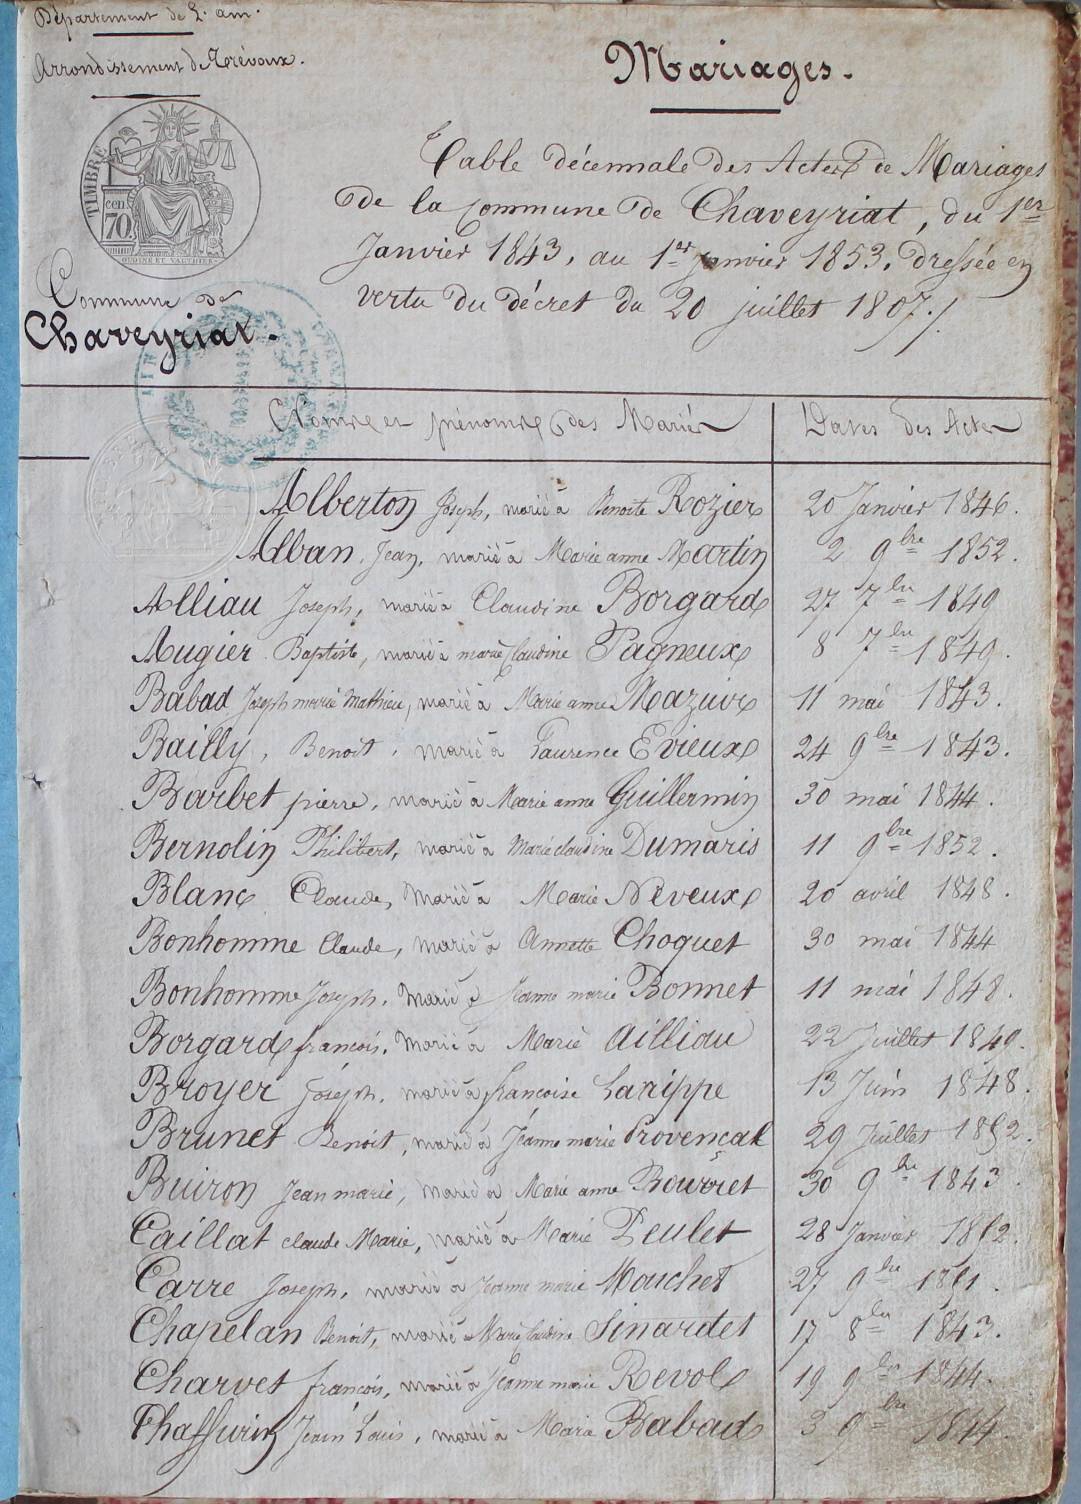 Département de L'ain.
Arrondissement de Trévoux.
Mariages.
TIMBRE
cen
70.
OUDINÉ ET VAUTHIER
Table décennale des Actes de Mariages
de la Commune de Chaveyriat, du 1er
Janvier 1843, au 1er janvier 1853, dressée en
vertu du décret du 20 juillet 1807./
Commune de
Chaveyriat.
Noms et prénoms des Mariés Dates des Actes
Alberton Joseph, marié à Benoite Rozier 20 Janvier 1846.
Alban Jean, marié à Marie anne Martin 2 9bre 1852.
Alliau Joseph, marié à Claudine Borgard 27 7bre 1849
Augier Baptiste, marié à marie Claudine Pagneux 8 7bre 1849.
Babad Joseph marie Mathieu, marié à Marie anne Mazuir 11 mai 1843.
Bailly, Benoit, marié à Laurence Evieux 24 9bre 1843.
Barbet pierre, marié à Marie anne Guillermin 30 mai 1844.
Bernolin Philibert, marié à Marie claudine Dumaris 11 9bre 1852.
Blanc Claude, Marié à Marie Neveux 20 avril 1848.
Bonhomme Claude, marié à Annette Choquet 30 mai 1844
Bonhomme Joseph, Marié à Jeanne marie Bonnet 11 mai 1848.
Borgard francois, Marié à Marie Ailliau 22 Juillet 1849.
Broyer Joseph, marié à francoise Larippe 13 Juin 1848.
Brunet Benoit, marié à Jeanne marie Provencal 29 Juillet 1852.
Buiron Jean marie, marié à Marie anne Bourret 30 9bre 1843.
Caillat claude Marie, marié à Marie Peulet 28 Janvier 1852.
Carre Joseph, marié à Jeanne marie Mouchet 27 9bre 1851.
Chapelan Benoit, marié à Marie Claudine Sinardet 17 8bre 1843.
Charvet francois, marié à Jeanne marie Revol 19 9bre 1844.
Chaffurin Jean Louis, marié à Marie Babad 3 9bre 1844.